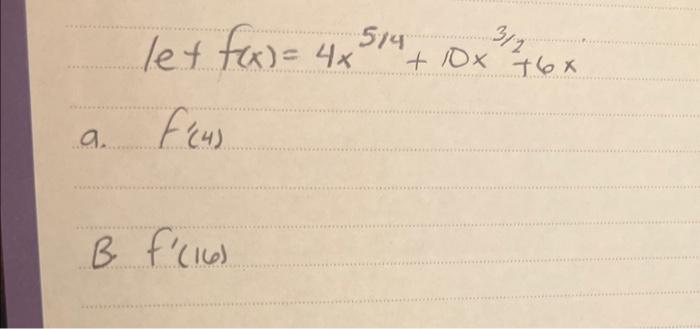 let f(x) = 4x^5/4 + 10x^3/2 + 6x
a. f'(4)
B f'(16)